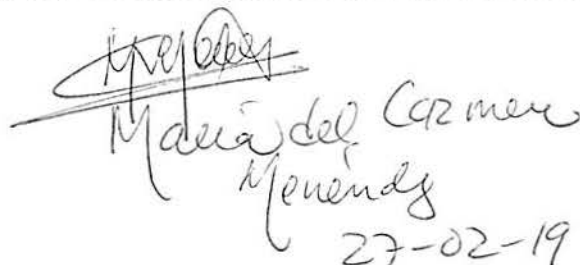 María del Carmen
Menéndez
27-02-19